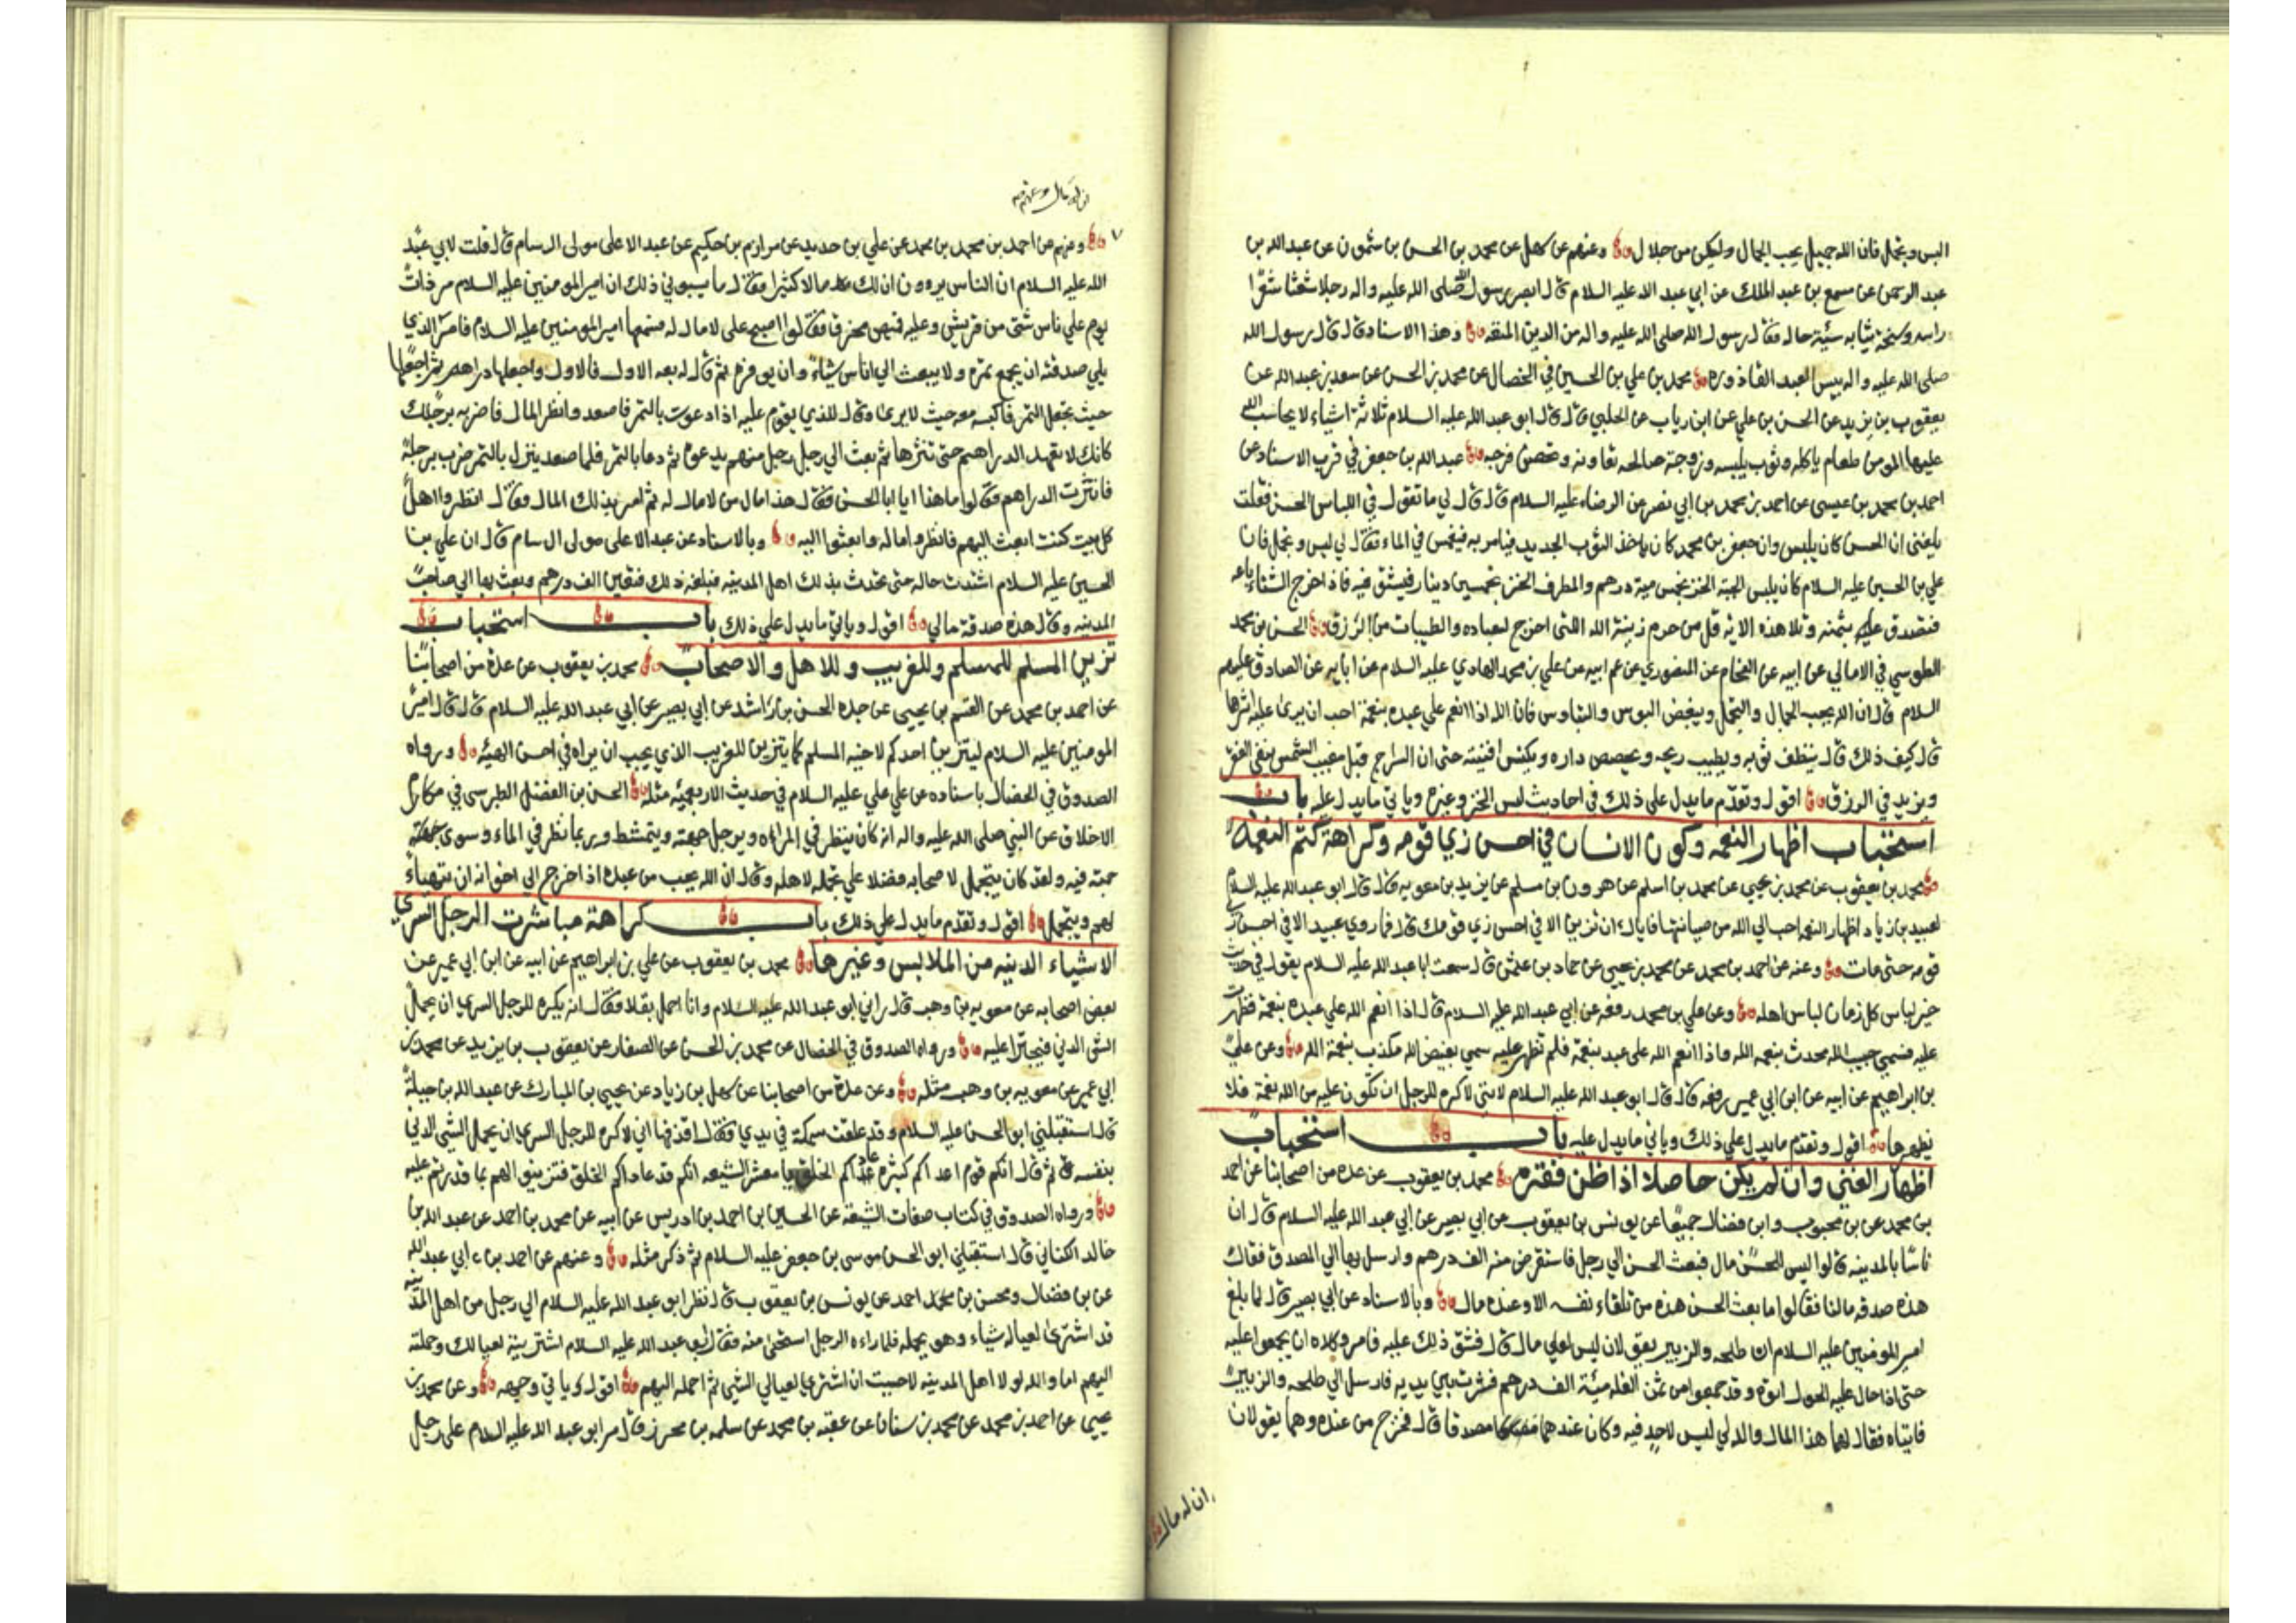 البس وتجمل فان الله جميل يحب الجمال وليكن من حلال وعنهم عن سهل عن محمد بن الحسن بن شمون عن عبدالله بن
عبد الرحمن عن مسمع بن عبد الملك عن ابي عبد الله عليه السلام قال ابصر رسول الله صلى الله عليه واله رجلا شعثا شعرا
راسه وسخة ثيابه سيئة حاله فقال رسول الله صلى الله عليه واله من الدين المتعه وهذا الاسناد قال قال رسول الله
صلى الله عليه واله بيس العبد القاذوره محمد بن علي بن الحسين في الخصال عن محمد بن الحسن عن سعد بن عبد الله عن
يعقوب بن يزيد عن الحسن بن علي عن ابن رياب عن الحلبي قال قال ابو عبد الله عليه السلام ثلاثة اشياء لا يحاسب الله
عليها المومن طعام ياكله وثوب يلبسه وزوجة صالحه تعاونه وتحصن فرجه عبد الله بن جعفر في قرب الاسناد عن
احمد بن محمد بن عيسى عن احمد بن محمد بن ابي نصر عن الرضاء عليه السلام قال قال لي ما تقول في اللباس الحسن فقلت
بلغني ان الحسن كان يلبس وان جعفر بن محمد كان ياخذ الثوب الجديد فيامر به فيغمس في الماء فقال لي لبس وتجمل فان
علي بن الحسين عليه السلام كان يلبس الجبة الخز بخمس مية درهم والمطرف الخز بخمسين دينار فيشتو فيه فاذ اخرج الشتاء باعه
فتصدق عليه بثمنه وتلا هذه الايه قل من حرم زينة الله التي اخرج لعباده والطيبات من الرزق الحسن بن محمد
الطوسي في الامالي عن ابيه عن الفحام عن المنصوري عن عم ابيه عن علي بن محمد الهادي عليه السلام عن ابايه عن الصادق عليهم
السلام قال ان الله يحب الجمال والتجمل ويبغض البوس والتباوس فان الله اذا انعم علي عبده بنعمة احب ان يرى عليه اثرها
قال كيف ذلك قال ينظف ثوبه ويطيب ريحه ويجصص داره ويكنس افنيته حتى ان السراج قبل مغيب الشمس ينفي الفقر
ويزيد في الرزق اقول وتقدم ما يدل على ذلك في احاديث لبس الخز وغيره وياتي ما يدل عليه باب
استحباب اظهار النعمه وكون الانسان في احسن زي قومه وكراهة كتم النعمة
محمد بن يعقوب عن محمد بن يحيى عن محمد بن اسلم عن هرون بن مسلم عن يزيد بن معويه قال قال ابو عبد الله عليه السلام
لعبيد بن زياد اظهار النعمه احب الي الله من صيانتها فاياك ان تزين الا في احسن زي قومك قال فما روي عبيد الا في احسن زي
قومه حتى مات وعنه عن احمد بن محمد عن محمد بن يحيى عن حماد بن عثمن قال سمعت ابا عبد الله عليه السلام يقول في حديث
خير لباس كل زمان لباس اهله وعن علي بن محمد رفعه عن ابي عبد الله عليه السلام قال اذا انعم الله علي عبده بنعمة فظهرت
عليه فسمي حبيب الله محدث بنعمه الله واذا انعم الله على عبد بنعمة فلم تظهر عليه سمي بغيض الله مكذب بنعمة الله وعن علي
بن ابراهيم عن ابيه عن ابن ابي عمير رفعه قال قال ابو عبد الله عليه السلام لانني لاكره للرجل ان تكون عليه من الله نعمة فلا
يظهرها اقول وتقدم ما يدل علي ذلك وياتي ما يدل عليه باب استحباب
اظهار الغني وان لم يكن حاصلا اذا ظن فقره محمد بن يعقوب عن عده من اصحابنا عن احمد
بن محمد عن بن محبوب وابن فضال جميعا عن يونس بن يعقوب عن ابي بصير عن ابي عبد الله عليه السلام قال ان
ناسا بالمدينه قالوا ليس للحسن مال فبعث الحسن الي رجل فاستقرض منه الف درهم وارسل بها الي المصدق فقال
هذه صدقه مالنا فقالوا ما بعث الحسن هذه من تلقاء نفسه الا وعنده مال وبالاسناد عن ابي بصير قال لما بلغ
امير المومنين عليه السلام ان طلحه والزبير يقولان ليس لعلي مال قال فشق ذلك عليه فامر وكلاه ان يجمعوا عليه
حتى اذا حال عليه الحول اتوه وقد جمعوا من ثمن الغله مئة الف درهم فنثرت بين يديه فارسل الي طلحه والزبير
فاتياه فقال لهما هذا المال والله لي ليس لاحد فيه وكان عندهما مصدقا قال فخرج من عنده وهما يقولان
ان له مال
وعنهم عن احمد بن محمد بن محمد عن علي بن حديد عن مرازم بن حكيم عن عبد الاعلى مولى ال سام قال قلت لابي عبد
الله عليه السلام ان الناس يرون ان لك مالا كثيرا فقال ما يسوني ذلك ان امير المومنين عليه السلام مر ذات
يوم علي ناس شتى من قريش وعليه قميص مخرق فقالوا اصبح علي لا مال له فسمعها امير المومنين عليه السلام فامر الذي
يلي صدقته ان يجمع تمره ولا يبعث الي اناس شياء وان يوفره ثم قال له بعه الاول فالاول واجعلها دراهم ثم اجعلها
حيث تجعل التمر فاكبسه معه حيث لا يرى وقال للذي يقوم عليه اذا دعوت بالتمر فاصعد وانظر المال فاضربه برجلك
كانك لا تعمد الدراهم حتى تنثرها ثم بعث الي رجل رجل منهم يدعوه ثم دعا بالتمر فلما صعد ينزل بالتمر ضرب برجله
فانتثرت الدراهم فقالوا ما هذا يا ابا الحسن فقال هذا مال من لا مال له ثم امر بذلك المال فقال انظروا اهل
كل بيت كنت ابعث اليهم فانظروا ماله وابعثوا اليه وبالاسناد عن عبد الاعلى مولى ال سام قال ان علي بن
الحسين عليه السلام اشتدت حاله حتى تحدث بذلك اهل المدينه فبلغه ذلك فتعين الف درهم وبعث بها الي صاحب
المدينه وقال هذه صدقة مالي اقول وياتي ما يدل علي ذلك باب استحباب
تزين المسلم للمسلم وللغريب وللاهل والاصحاب محمد بن يعقوب عن عدة من اصحابنا
عن احمد بن محمد عن القسم بن يحيى عن جده الحسن بن راشد عن ابي بصير عن ابي عبد الله عليه السلام قال قال امير
المومنين عليه السلام ليتزين احدكم لاخيه المسلم كما يتزين للغريب الذي يحب ان يراه في احسن الهيئه ورواه
الصدوق في الخصال باسناده عن علي عليه السلام في حديث الاربعمئه مثله الحسن بن الفضل الطبرسي في مكارم
الاخلاق عن النبي صلى الله عليه واله انه كان ينظر في المراه ويرجل جمته ويتمشط وربما نظر في الماء وسوى جمته
فيه ولقد كان يتجمل لاصحابه فضلا علي تجمله لاهله وقال ان الله يحب من عبده اذا خرج الى اخوانه ان يتهياء
لهم ويتجمل اقول وتقدم ما يدل علي ذلك باب كراهة مباشرت الرجل السري
الاشياء الدنيه من الملابس وغيرها محمد بن يعقوب عن علي بن ابراهيم عن ابيه عن ابن ابي عمير عن
بعض اصحابه عن معويه بن وهب قال راني ابو عبد الله عليه السلام وانا احمل بقلا فقال انه يكره للرجل السري ان يحمل
الشي الدني فيجترا عليه ورواه الصدوق في الخصال عن محمد بن الحسن عن الصفار عن يعقوب بن يزيد عن محمد بن
ابي عمير عن معويه بن وهب مثله وعن عدة من اصحابنا عن سهل بن زياد عن يحيى بن المبارك عن عبد الله بن جبلة
قال استقبلني ابو الحسن عليه السلام وقد علقت سمكة في يدي فقال اقذفها اني لاكره للرجل السري ان يحمل الشي الدني
بنفسه ثم قال انكم قوم اعداكم كثيره عاداكم الخلق يا معشر الشيعه انكم قد عاداكم الخلق فتزينوا لهم بما قدرتم عليه
ورواه الصدوق في كتاب صفات الشيعه عن الحسين بن احمد بن ادريس عن ابيه عن محمد بن احمد عن عبد الله بن
خالد الكناني قال استقبلني ابو الحسن موسى بن جعفر عليه السلام ثم ذكر مثله وعنهم عن احمد بن ابي عبد الله
عن بن فضال ومحسن بن احمد عن يونس بن يعقوب قال نظر ابو عبد الله عليه السلام الي رجل من اهل المدينه
قد اشترى لعياله شياء وهو يحمله فلما راءه الرجل استحى منه فقال ابو عبد الله عليه السلام اشتريته لعيالك وحملته
اليهم اما والله لولا اهل المدينه لاحببت ان اشتري لعيالي الشي ثم احمله اليهم اقول وياتي وجهه وعن محمد بن
يحيى عن احمد بن محمد عن محمد بن سنان عن عقبه بن محمد عن سلمه بن محرز قال مر ابو عبد الله عليه السلام على رجل